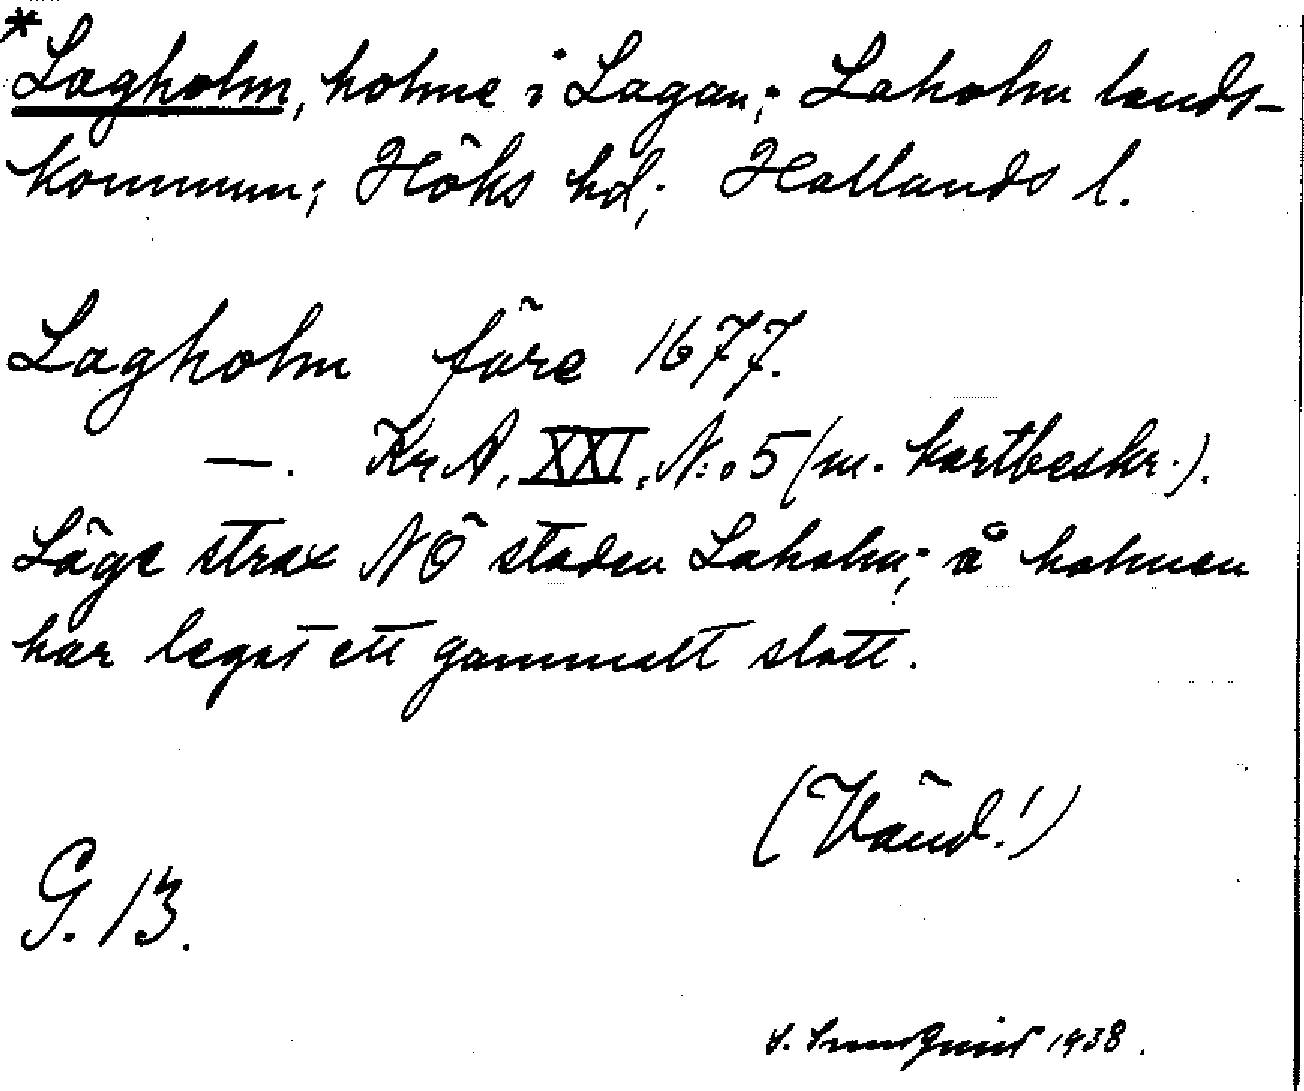 *Lagholm, holme i Lagan; Laholm lands-
kommun; Höks hd; Hallands l.
Lagholm före 1677.
—. Kr A. XXI. N:o 5 (m. kartbeskr.).
Läge strax NÖ staden Laholm; å holmen
har legat ett gammalt slott.
(Vänd!)
G. 13.
S. 1938.